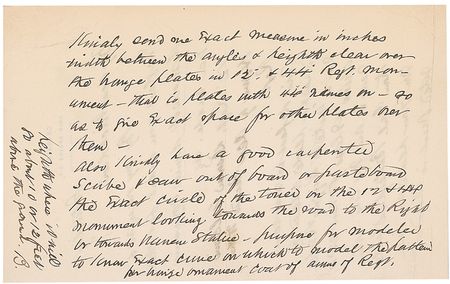 Kindly send me Exact measure in inches
width between the angles & height clear over
the bronze plates in 12 & 44 Regt. Mon-
ument – that is plates with the names on – so
as to give Exact space for other plates over
them –
Also Kindly have a good carpenter
Scribe & saw out of board or pasteboard
the Exact circle of the tower on the 12 & 44
monument looking towards the road to the Right
or towards Warren Statue – purpose for modeler
to know Exact curve on which to model the pattern
for bronze ornament coat of arms of Regt.
height where it will
be about 10 or 12 feet
above the ground. B.